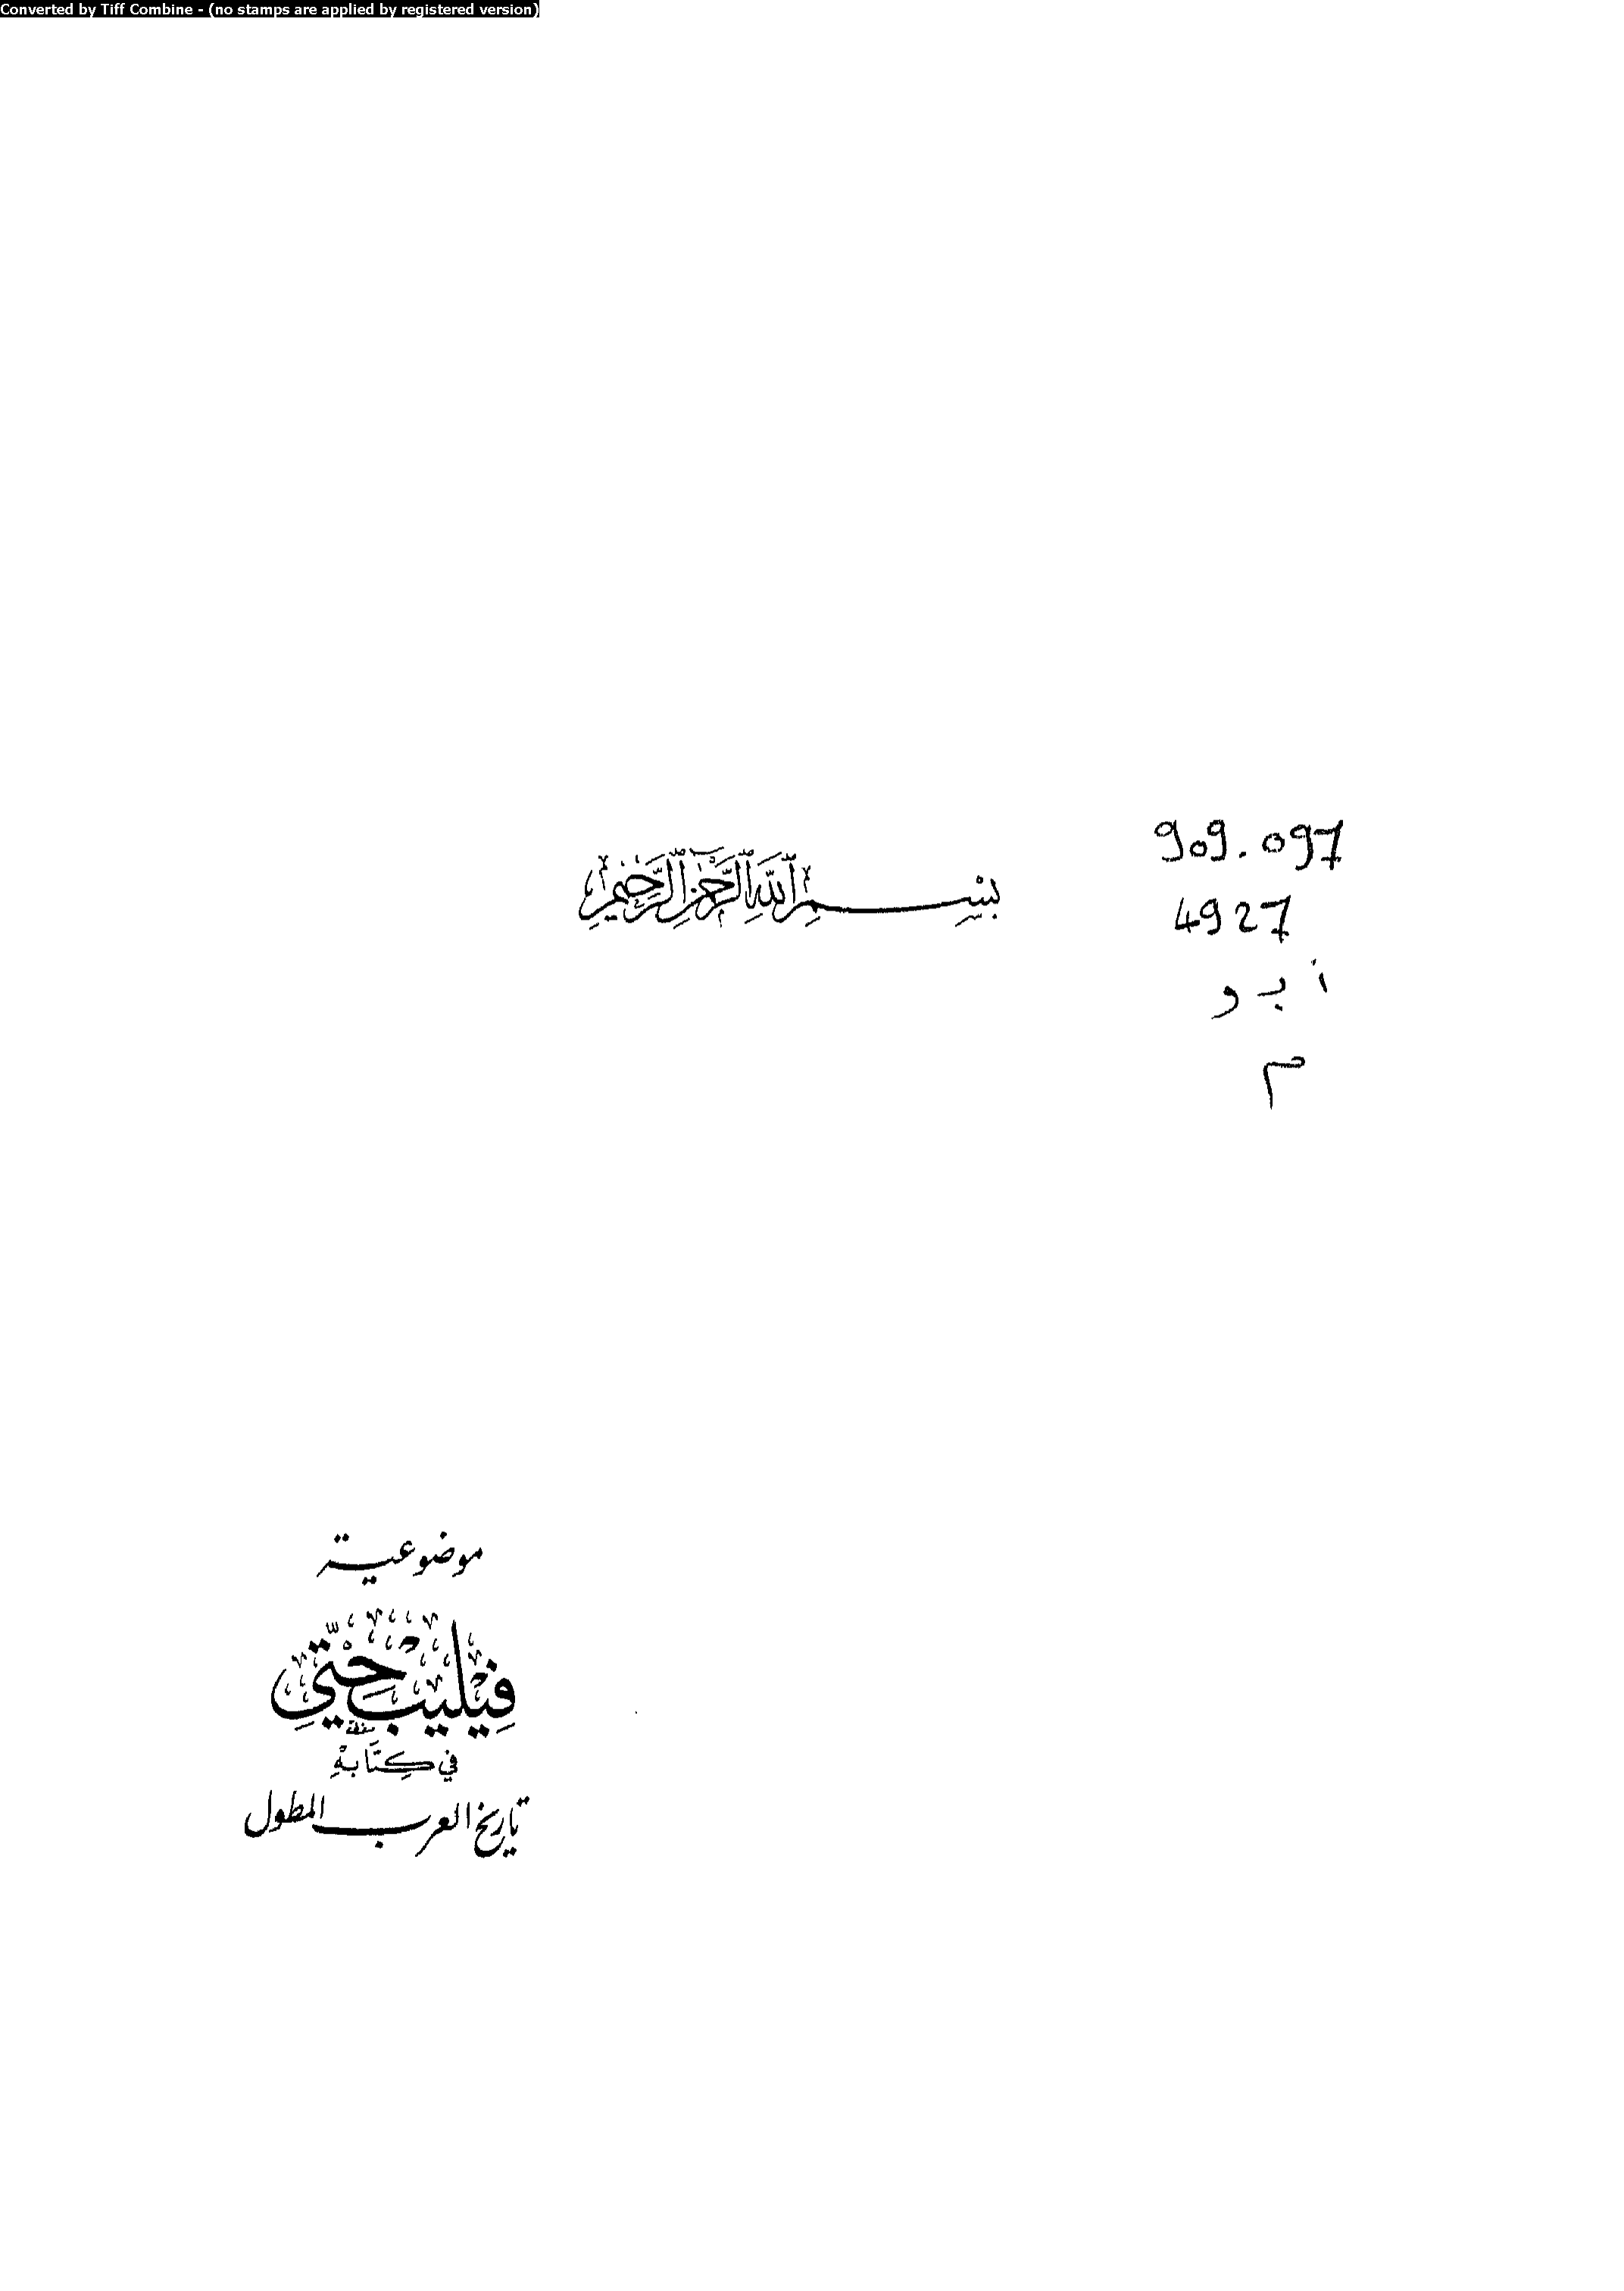 Converted by Tiff Combine - (no stamps are applied by registered version)
بِسْمِ اللَّهِ الرَّحْمَٰنِ الرَّحِيمِ
909.097
4927
أ ب و
م
موضوعية
فِيْليِبْ حِتِّي
في كِتَابهِ
تاريخ العرب المطول